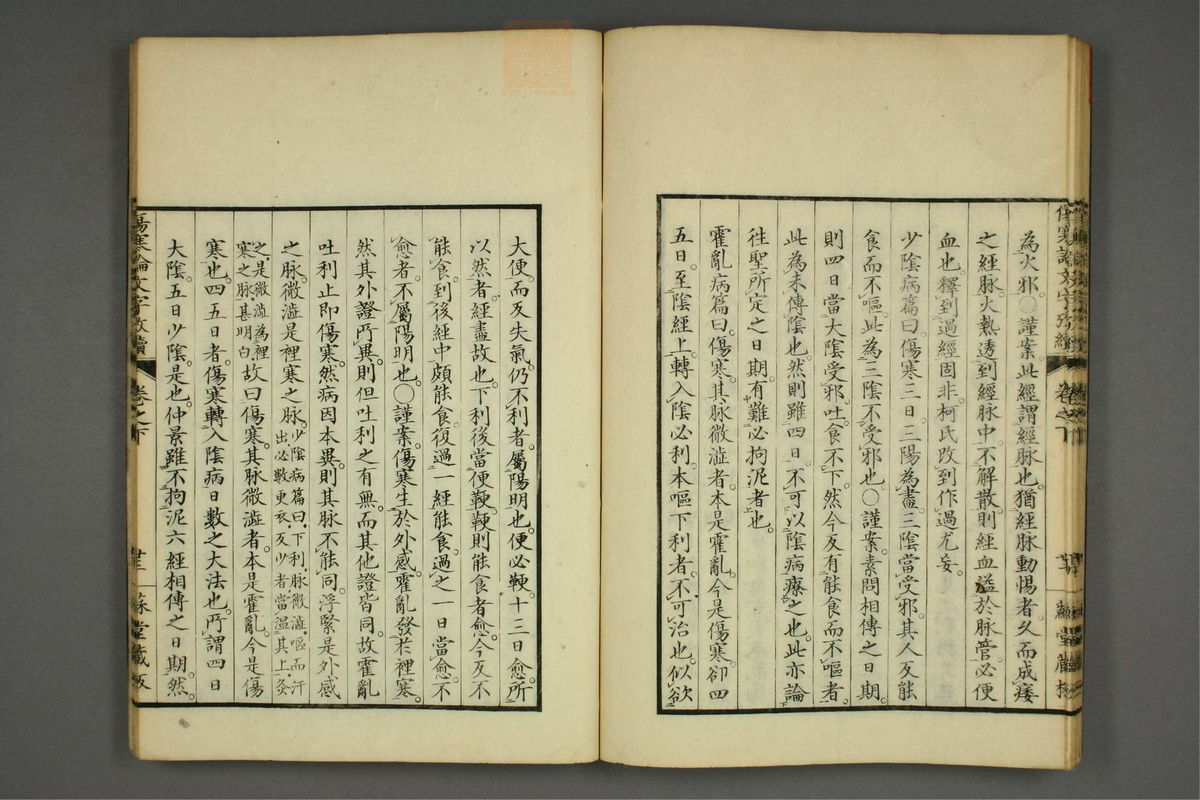 為火邪○謹案此經謂經脉也猶經脉動惕者久而成痿
之經脉火熱透到經脉中不解散則經血溢於脉管必便
血也釋到過經固非柯氏改到作過尤妄
少陰病篇曰傷寒三日三陽為盡三陰當受邪其人反能
食而不嘔此為三陰不受邪也○謹案素問相傳之日期
則四日當大陰受邪吐食不下然今反有能食而不嘔者
此為未傳陰也然則雖四日不可以陰病療之也此亦論
往聖所定之日期有難必拘泥者也
霍亂病篇曰傷寒其脉微澁者本是霍亂今是傷寒卻四
五日至陰經上轉入陰必利本嘔下利者不可治也似欲
大便而反失氣仍不利者屬陽明也便必鞕十三日愈所
以然者經盡故也下利後當便鞕鞕則能食者愈今反不
能食到後經中頗能食復過一經能食過之一日當愈不
愈者不屬陽明也○謹案傷寒生於外感霍亂發於裡寒
然其外證所異則但吐利之有無而其他證皆同故霍亂
吐利止即傷寒然病因本異則其脉不能同浮緊是外感
之脉微澁是裡寒之脉少陰病篇曰下利脉微澁嘔而汗
出必數更衣反少者當溫其上灸
之是微澁為裡
寒之脉甚明白故曰傷寒其脉微澁者本是霍亂今是傷
寒也四五日者傷寒轉入陰病日數之大法也所謂四日
大陰五日少陰是也仲景雖不拘泥六經相傳之日期然
傷寒論文字攷續
卷之下